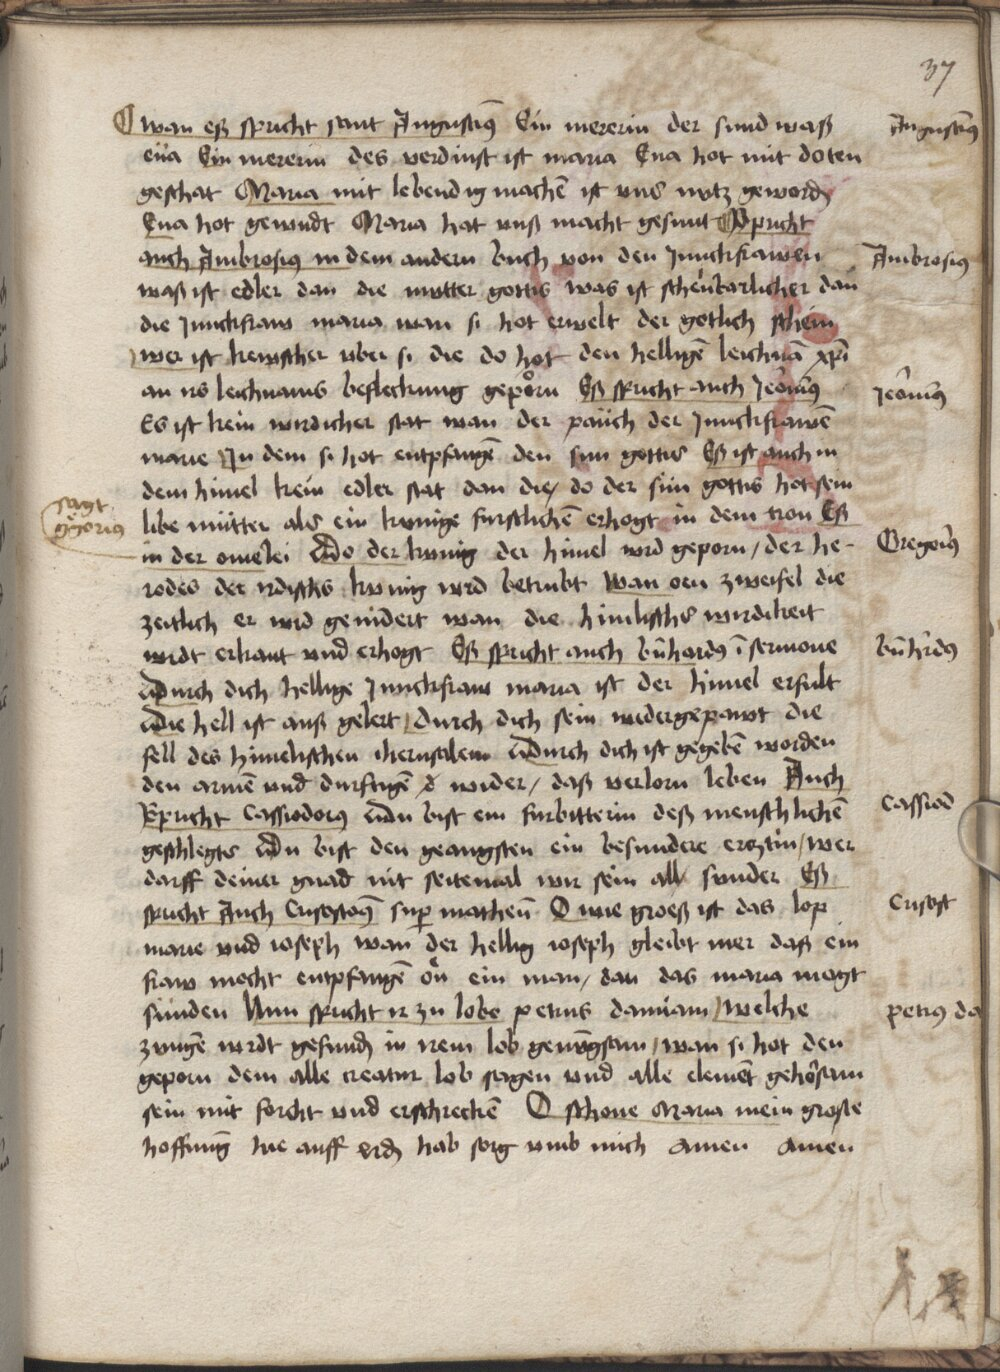 37
wan eß spricht sant Augustin9 Ein mererin der sund waß
Augustin9
eua Ein mererin des verdinst ist maria Eua hot mit doten
geschat Maria mit lebendig machē ist vns nutz geword
Eua hot gewndt Maria hat vnß macht gesunt Spricht
auch Ambrosius in dem andern buch von den Junckfrawen
Ambrosius
waß ist edler dan die mutter gottis was ist scheinbarlicher dan
die Junckfraw maria wan si hot erwelt der gotlich schein
wer ist kewscher vber si die do hot den helligē leichnā xpī
an irs leichnams befleckung geporn Eß spricht auch Jeronim9
Jeronim9
Es ist kein wirdicher stat wan der pauch der Junckfrawē
marie In dem si hot entpfangē den sun gottis Eß ist auch in
dem himel kein edler stat dan die / do der sun gottis hot sein
sagt
gigorius
libe mutter als ein kunige furstlichē erhogt in dem tron Eß
in der omelei Do der kunig der himel wird geporn / der he-
Gregori9
rodes der irdischs kunig wird betrubt wan oen zweifel die
zeitlich er wird genidert wan die himlischs wirdikeit
wirdt erkant vnd erhogt Eß spricht auch bn̄hardus ī sermone
bn̄hrdus
Durch dich hellige Junckfraw maria ist der himel erfult
Die hell ist auß gelert / durch dich sein widergepawt die
sell des himelischen iherusalem Durch dich ist gegebē worden
den armē vnd durftigē d wider / daß verlorn leben Auch
Spricht Cassiodorus Du bist ein furbitterin deß menschlichē
Cassiod
geschlegts Du bist den geangsten ein besundere ercztin / wer
darff deiner gnad nit seitemal wir sein all sunder Eß
spricht Auch Crisostom9 sup matheū O wie groeß ist das lop
Crisost
marie vnd ioseph wan der hellig ioseph gleibt mer daß ein
fraw mocht entpfangē on ein man / dan das maria mogt
sunden Nun spricht ir zu lobe petrus damiani / welche
petrus da
zungē wirdt gefund in irem lob genugsam / wan si hot den
geporn dem alle creatur lob sagen vnd alle elemēt gehorsam
sein mit forcht vnd erschreckē O schone Maria mein groste
hoffnung hie auff erd hab sorg vmb mich Amen Amen